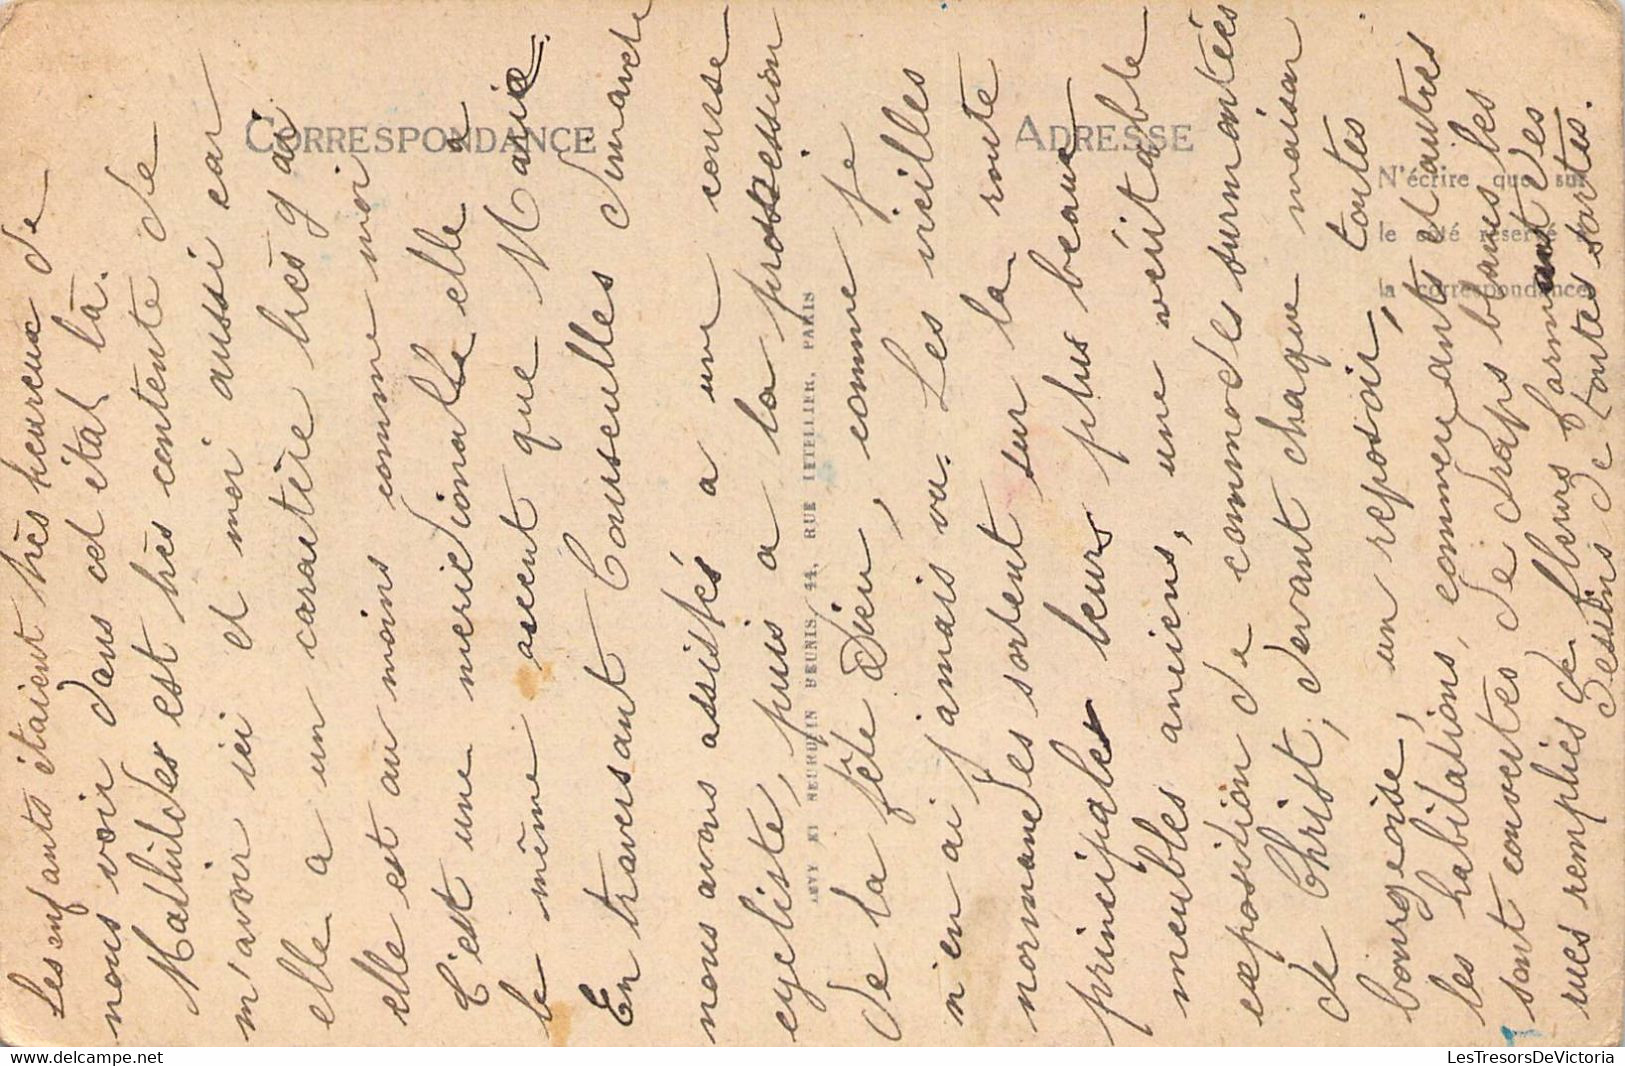 CORRESPONDANCE
ADRESSE
N'écrire que sur
le côté réservé à
la correspondance
LEVY ET NEURDEIN REUNIS, 44, RUE LETELLIER, PARIS
Les enfants étaient très heureux de
nous voir dans cet état là.
Mathilde est très contente de
m'avoir ici et moi aussi car
elle a un caractère très gai
elle est au moins comme moi
C'est une meridionale elle a
le même accent que Marie.
En traversant Courseulles dimanche
nous avons assistés a une course
cycliste, puis a la procession
de la fête Dieu, comme je
n'en ai jamais vu. Les vieilles
normandes sortent sur la route
principale leurs plus beaux
meubles anciens, une véritable
exposition de commodes surmontées
de Christ, devant chaque maison
bourgeoise, un reposoir, toutes
les habitations, commerçants et autres
sont couvertes de draps blancs les
rues remplies de fleurs formant des
dessins de toutes sortes.
LesTresorsDeVictoria